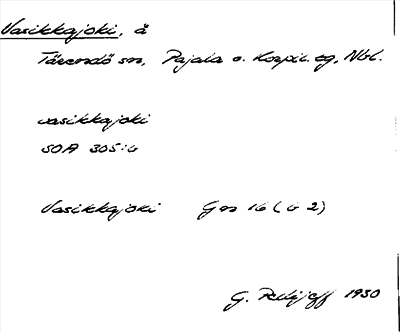 Vasikkajoki, å
Tärendö sn, Pajala o. Korpil. tg, Nbl.
vasikkajoki
SOA 305:6
Vasikkajoki Gos 16 (6 2)
G. 1930